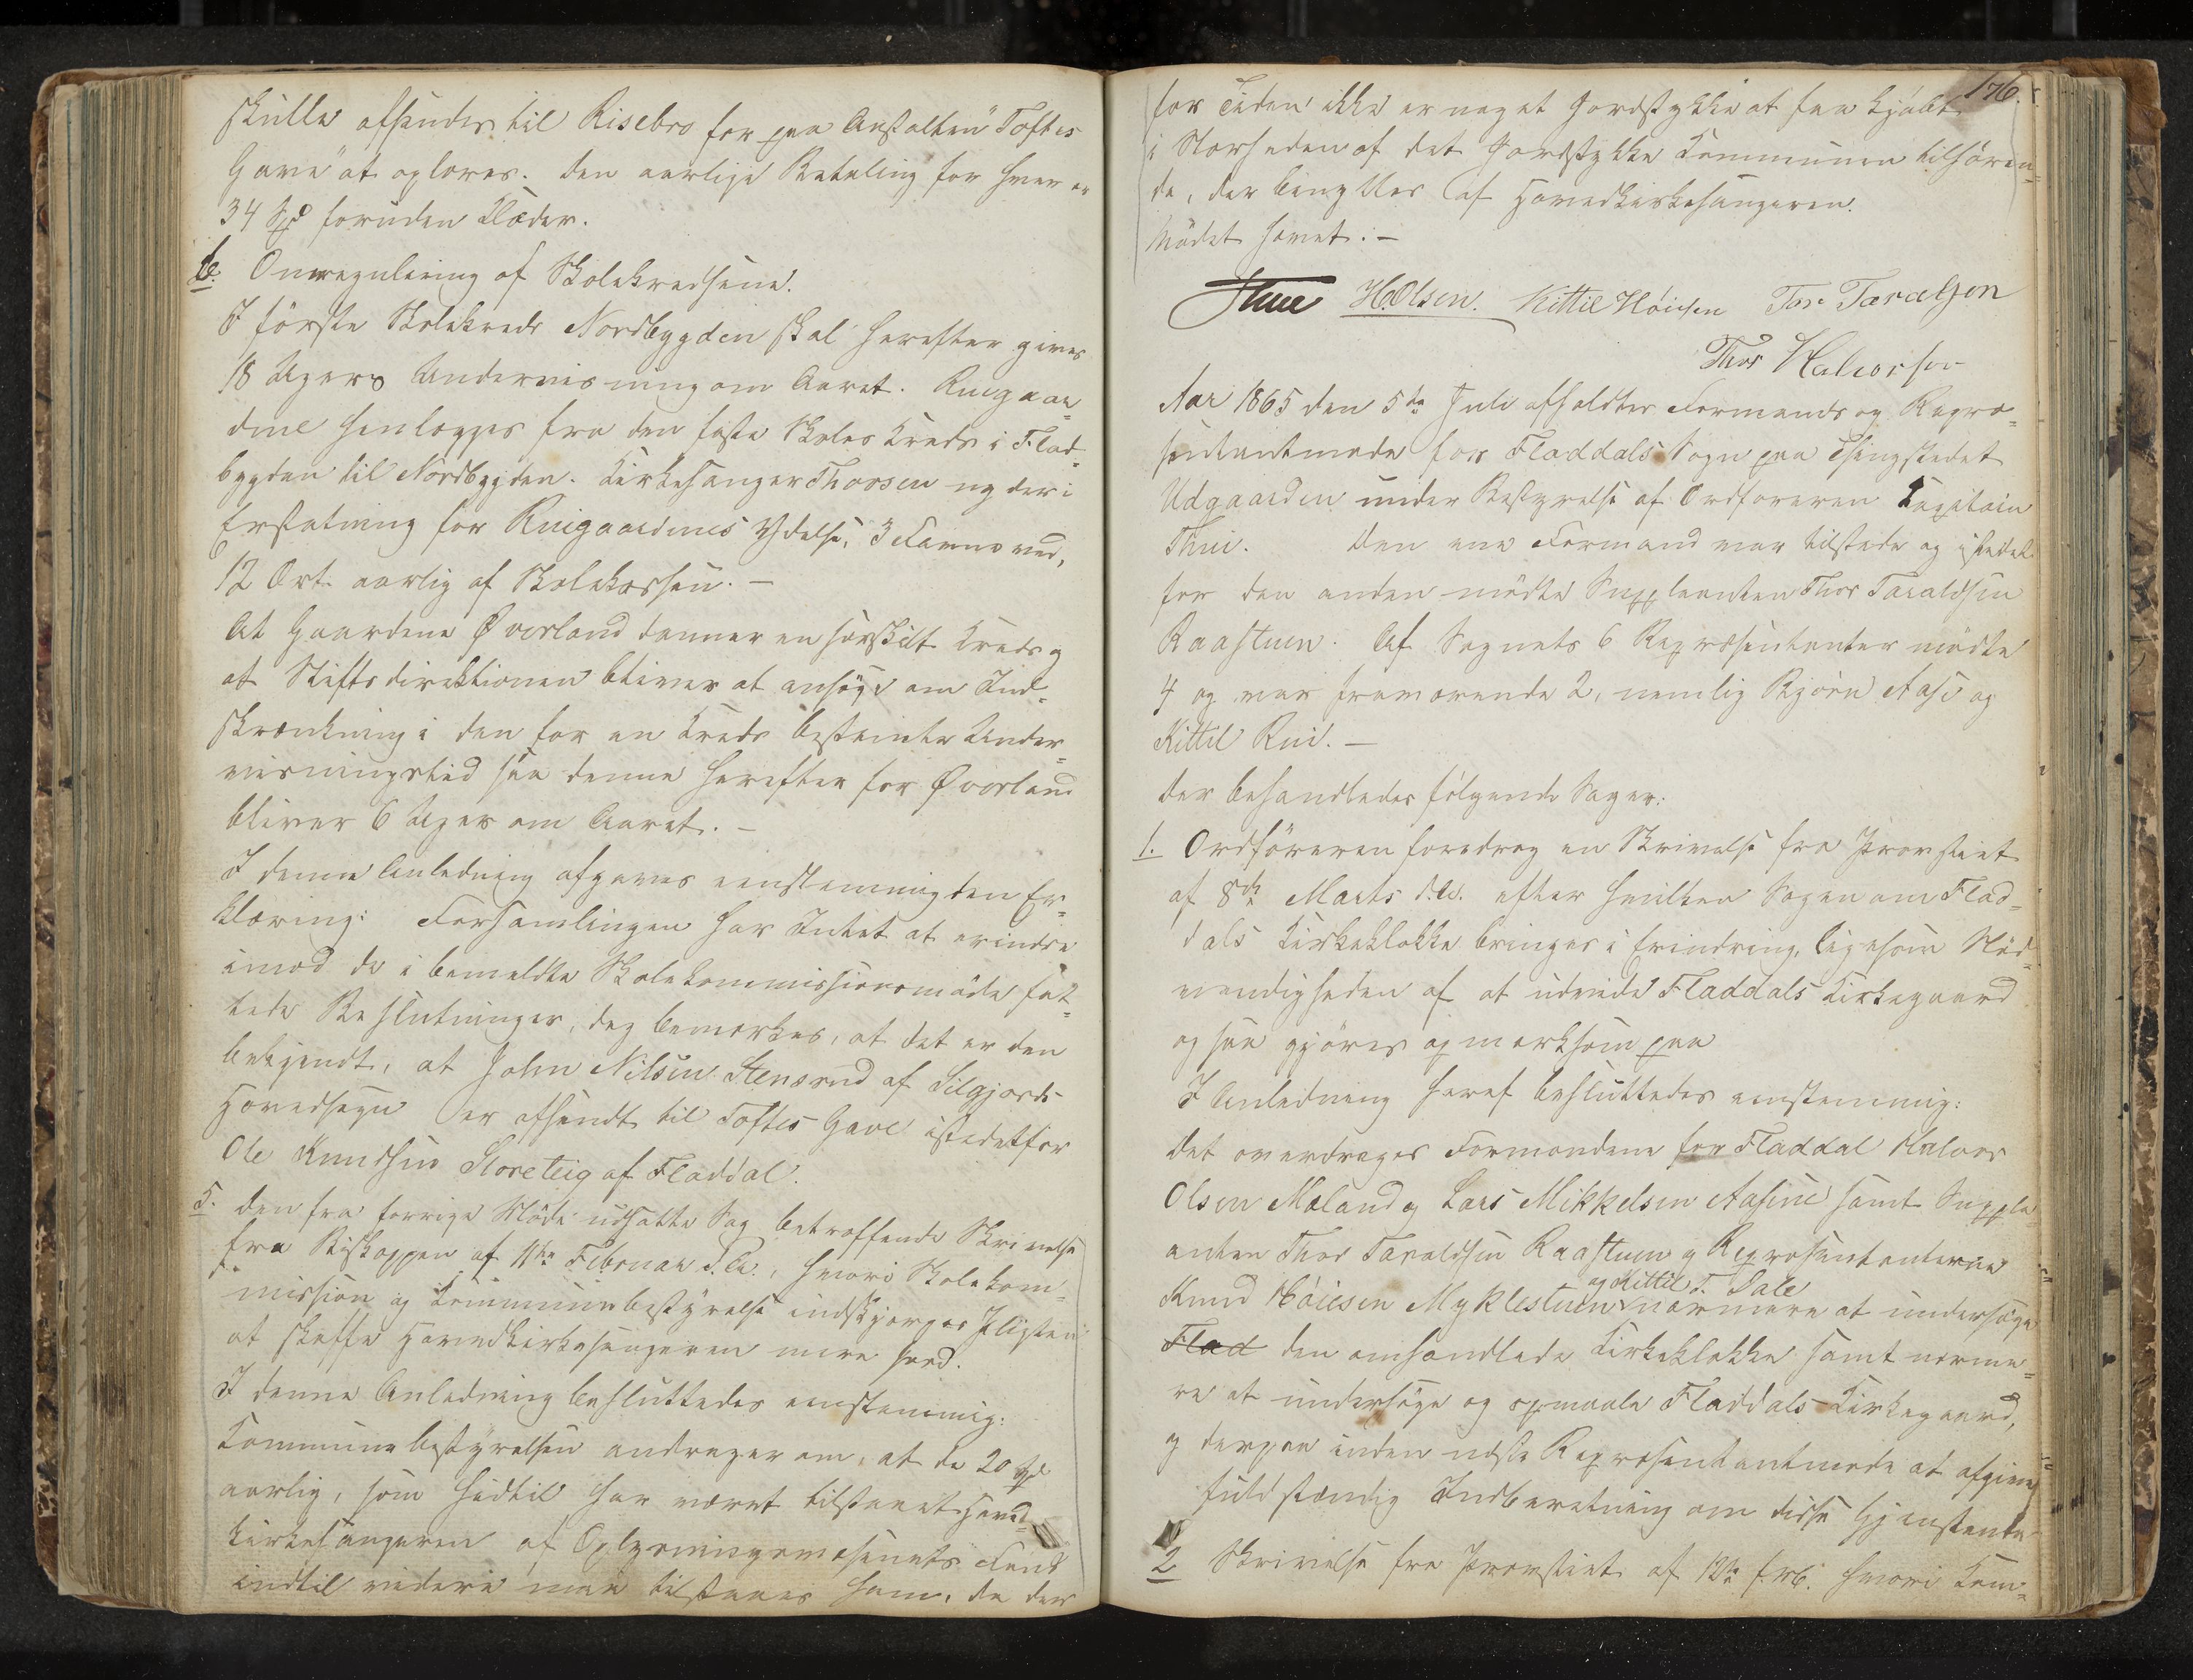 skulle afsendes til Risebro for paa Anstalten "Toftes
Gave" at oplæres. Den aarlige Betaling for hver er
34 Spd foruden Klæder.
b. Omregulering af Skolekredsene.
I første Skolekreds Nordbygden skal herefter gives
18 Ugers Undervisning om Aaret. Ruigaar=
dene henlægges fra den faste Skoles Kreds i Flad=
bygden til Nordbygden. Kirkesanger Thorsen nyder i
Erstatning for Ruigaardenes Ydelse, 3 Favne ved,
12 Ort aarlig af Skolekassen. —
At Gaardene Øverland danner en særskilt Kreds og
at Stiftsdirektionen bliver at ansøge om Ind=
skrænkning i den for en Kreds bestemte Under=
visningstid saa denne herefter for Øverland
bliver 6 Uger om Aaret. —
I denne Anledning afgaves eenstemmig den Er=
klæring: Forsamlingen har Intet at erindre
imod de i bemeldte Skolekommissionsmøde fat=
tede Beslutninger, dog bemærkes, at det er den
bekjendt, at John Nilsen Stensrud af Silgjords
Hovedsogn er afsendt til Toftes Gave istedetfor
Ole Knudsen Storeteig af Fladdal.
5. Den fra forrige Møde udsatte Sag betræffende Skrivelse
fra Biskoppen af 11te Februar d.A., hvori Skolekom=
mission og Kommunebestyrelse indskjærpes Pligten
at skaffe Hovedkirkesangeren mere Jord.
I denne Anledning besluttedes eenstemmig:
Kommunebestyrelsen andrager om, at de 20 Spd
aarlig, som hidtil har været tilstaaet Hoved=
kirkesangeren af Oplysningsvæsenets Fond
indtil videre maa tilstaaes ham, da der
176.
for Tiden ikke er noget Jordstykke at faa kjøbt
i Nærheden af det Jordstykke Kommunen tilhøren=
de, der benyttes af Hovedkirkesangeren.
Mødet hævet. —
Thue HOlsen. Kittil Høiesen Tor Tarælsen
Thor Halvorsen
Aar 1865 den 5te Juli afholdtes Formands og Repræ=
sentantmøde for Fladdals Sogn paa Thingstedet
Udgaarden under Bestyrelse af Ordføreren Kapitain
Thue. Den ene Formand var tilstede og istedet
for den anden mødte Suppleanten Thor Taraldsen
Raastuen. Af Sognets 6 Repræsentanter mødte
4 og var fraværende 2, nemlig Bjørn Aase og
Kittil Rui. —
Der behandledes følgende Sager:
1. Ordføreren foredrog en Skrivelse fra Provstiet
af 8de Marts d.A. efter hvilken Sagen om Flad=
dals Kirkeklokke bringes i Erindring, ligesom Nød=
vendigheden af at udvide Fladdals Kirkegaard
ogsaa gjøres opmærksom paa
I Anledning heraf besluttedes eenstemmig:
Det overdrages Formændene for Fladdal Halvor
Olsen Mæland og Lars Mikkelsen Aasene samt Supple=
anten Thor Taraldsen Raastuen og Repræsentanterne
Knud Høiesen Myklestuen og Kittil T. Dale nærmere at undersøge
Flad den omhandlede Kirkeklokke samt nærme=
re at undersøge og opmaale Fladdals Kirkegaard,
og derpaa inden næste Repræsentantmøde at afgive
fuldstændig Indberetning om disse Gjenstande
2 Skrivelse fra Provstiet af 12te hvori Kom=